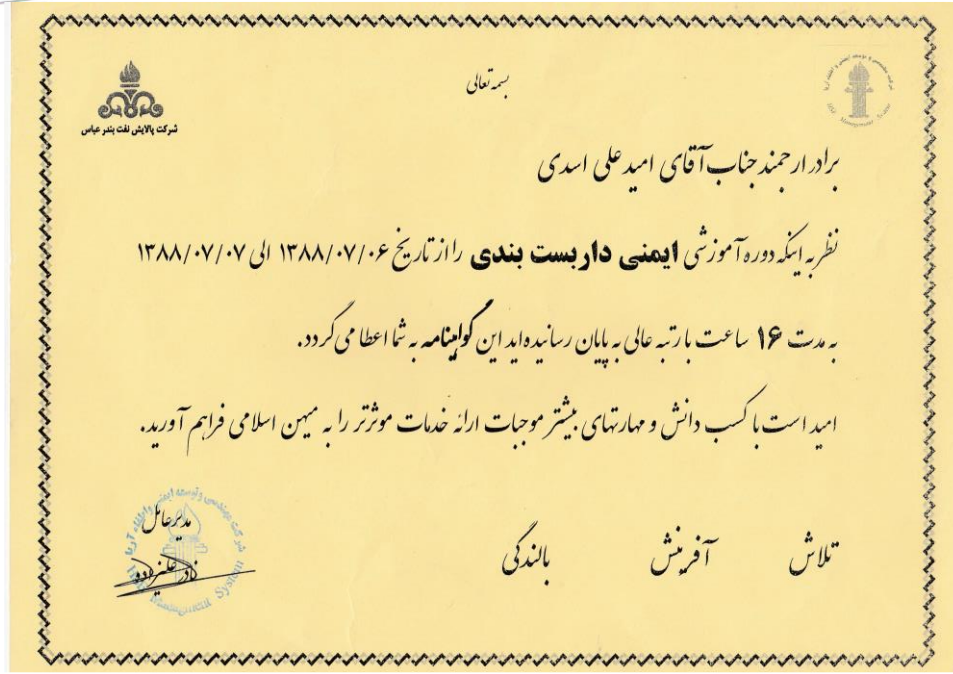 بسمه تعالی
شرکت پالایش نفت بندر عباس
برادر ارجمند جناب آقای امید علی اسدی
نظر به اینکه دوره آموزشی ایمنی داربست بندی را از تاریخ ۱۳۸۸/۰۷/۰۶ الی ۱۳۸۸/۰۷/۰۷
به مدت ۱۶ ساعت با رتبه عالی به پایان رسانیده اید این گواهینامه به شما اعطا می گردد.
امید است با کسب دانش و مهارتهای بیشتر موجبات ارائه خدمات موثرتر را به میهن اسلامی فراهم آورید.
تلاش آفرینش بالندگی
مدیرعامل
شرکت مهندسی و توسعه ایمنی و اطفاء آریا
Management System